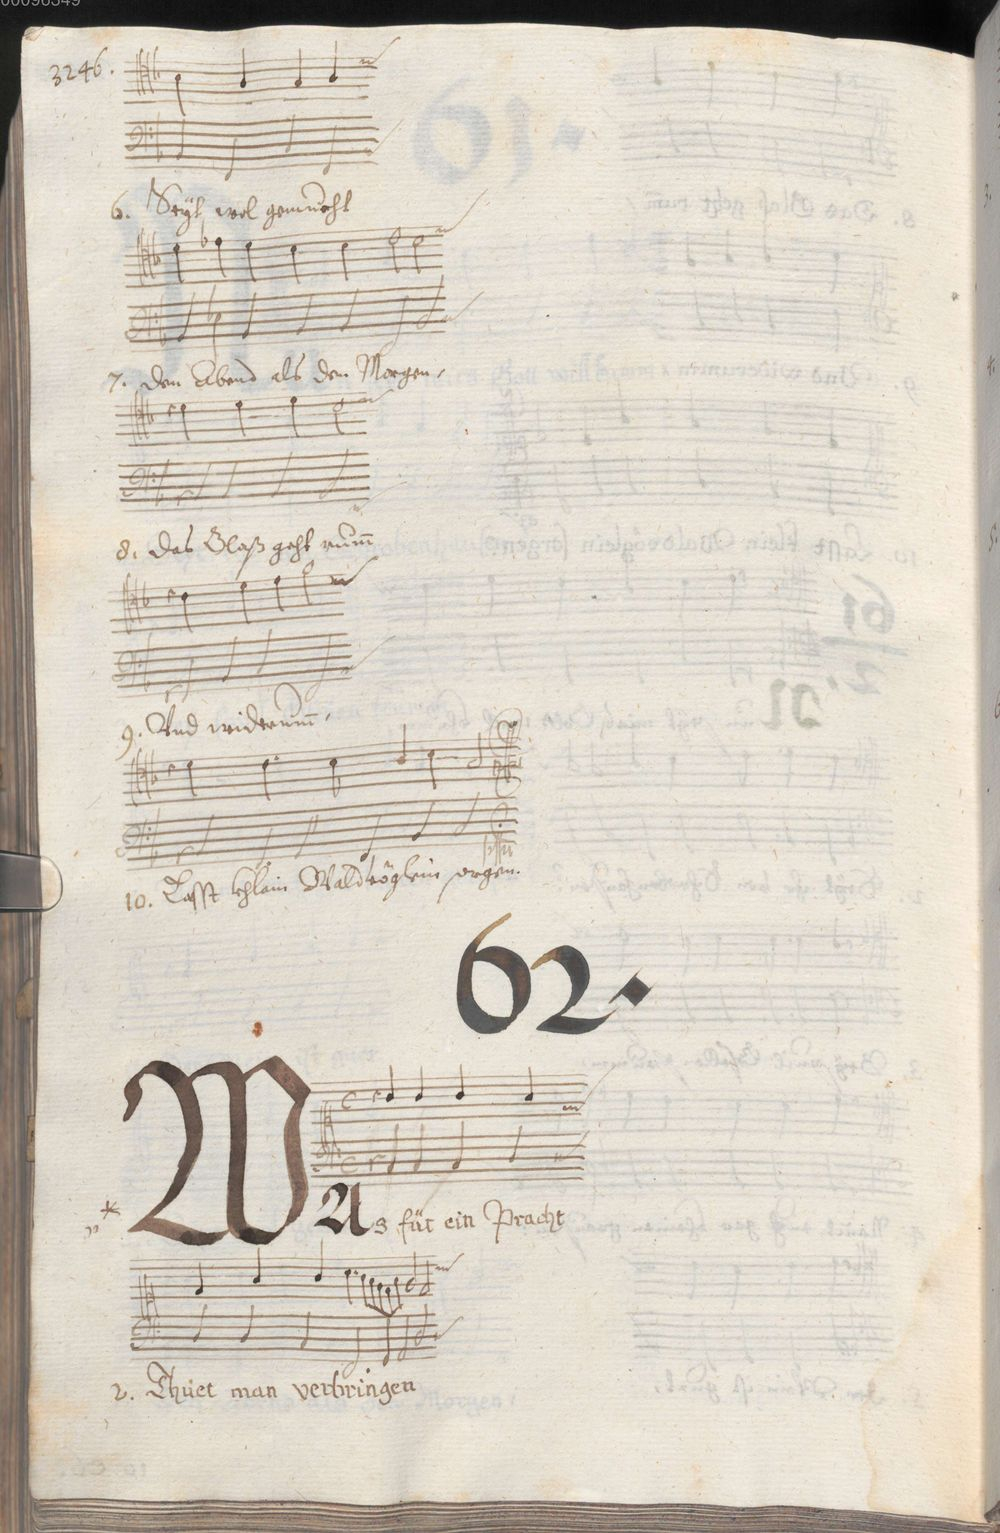 00096349
3246.
6. Seyt wol gemueht
7. den Abend als den Morgen,
8. das Glaß geht rumm̄
9. Vnd widerumm̄,
10. Lasst khlain Waldvöglein sorgen.
62.
WAs für ein Pracht
2. Thuet man verbringen